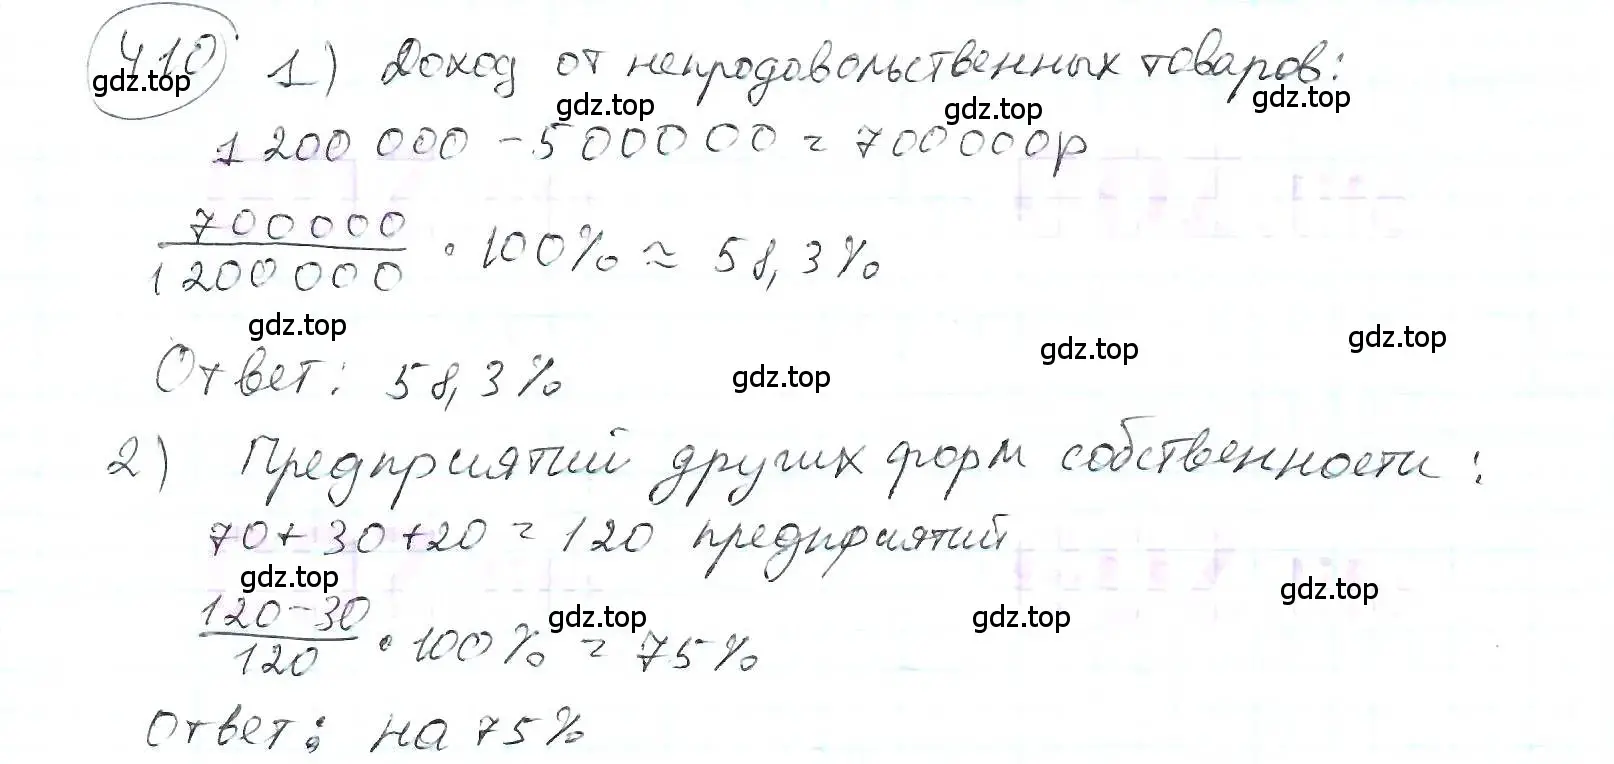 410 1) Доход от непродовольственных товаров:
gdz.top gdz.top gdz.top gdz.top
1 200 000 - 500000 = 700000р
700000
1200 000 · 100% ≈ 58,3%
gdz.top gdz.top gdz.top gdz.top
Ответ: 58,3%
2) Предприятий других форм собственности:
70+30+20 = 120 предприятий
gdz.top gdz.top gdz.top gdz.top
120-30
120 · 100% = 75%
Ответ: на 75%